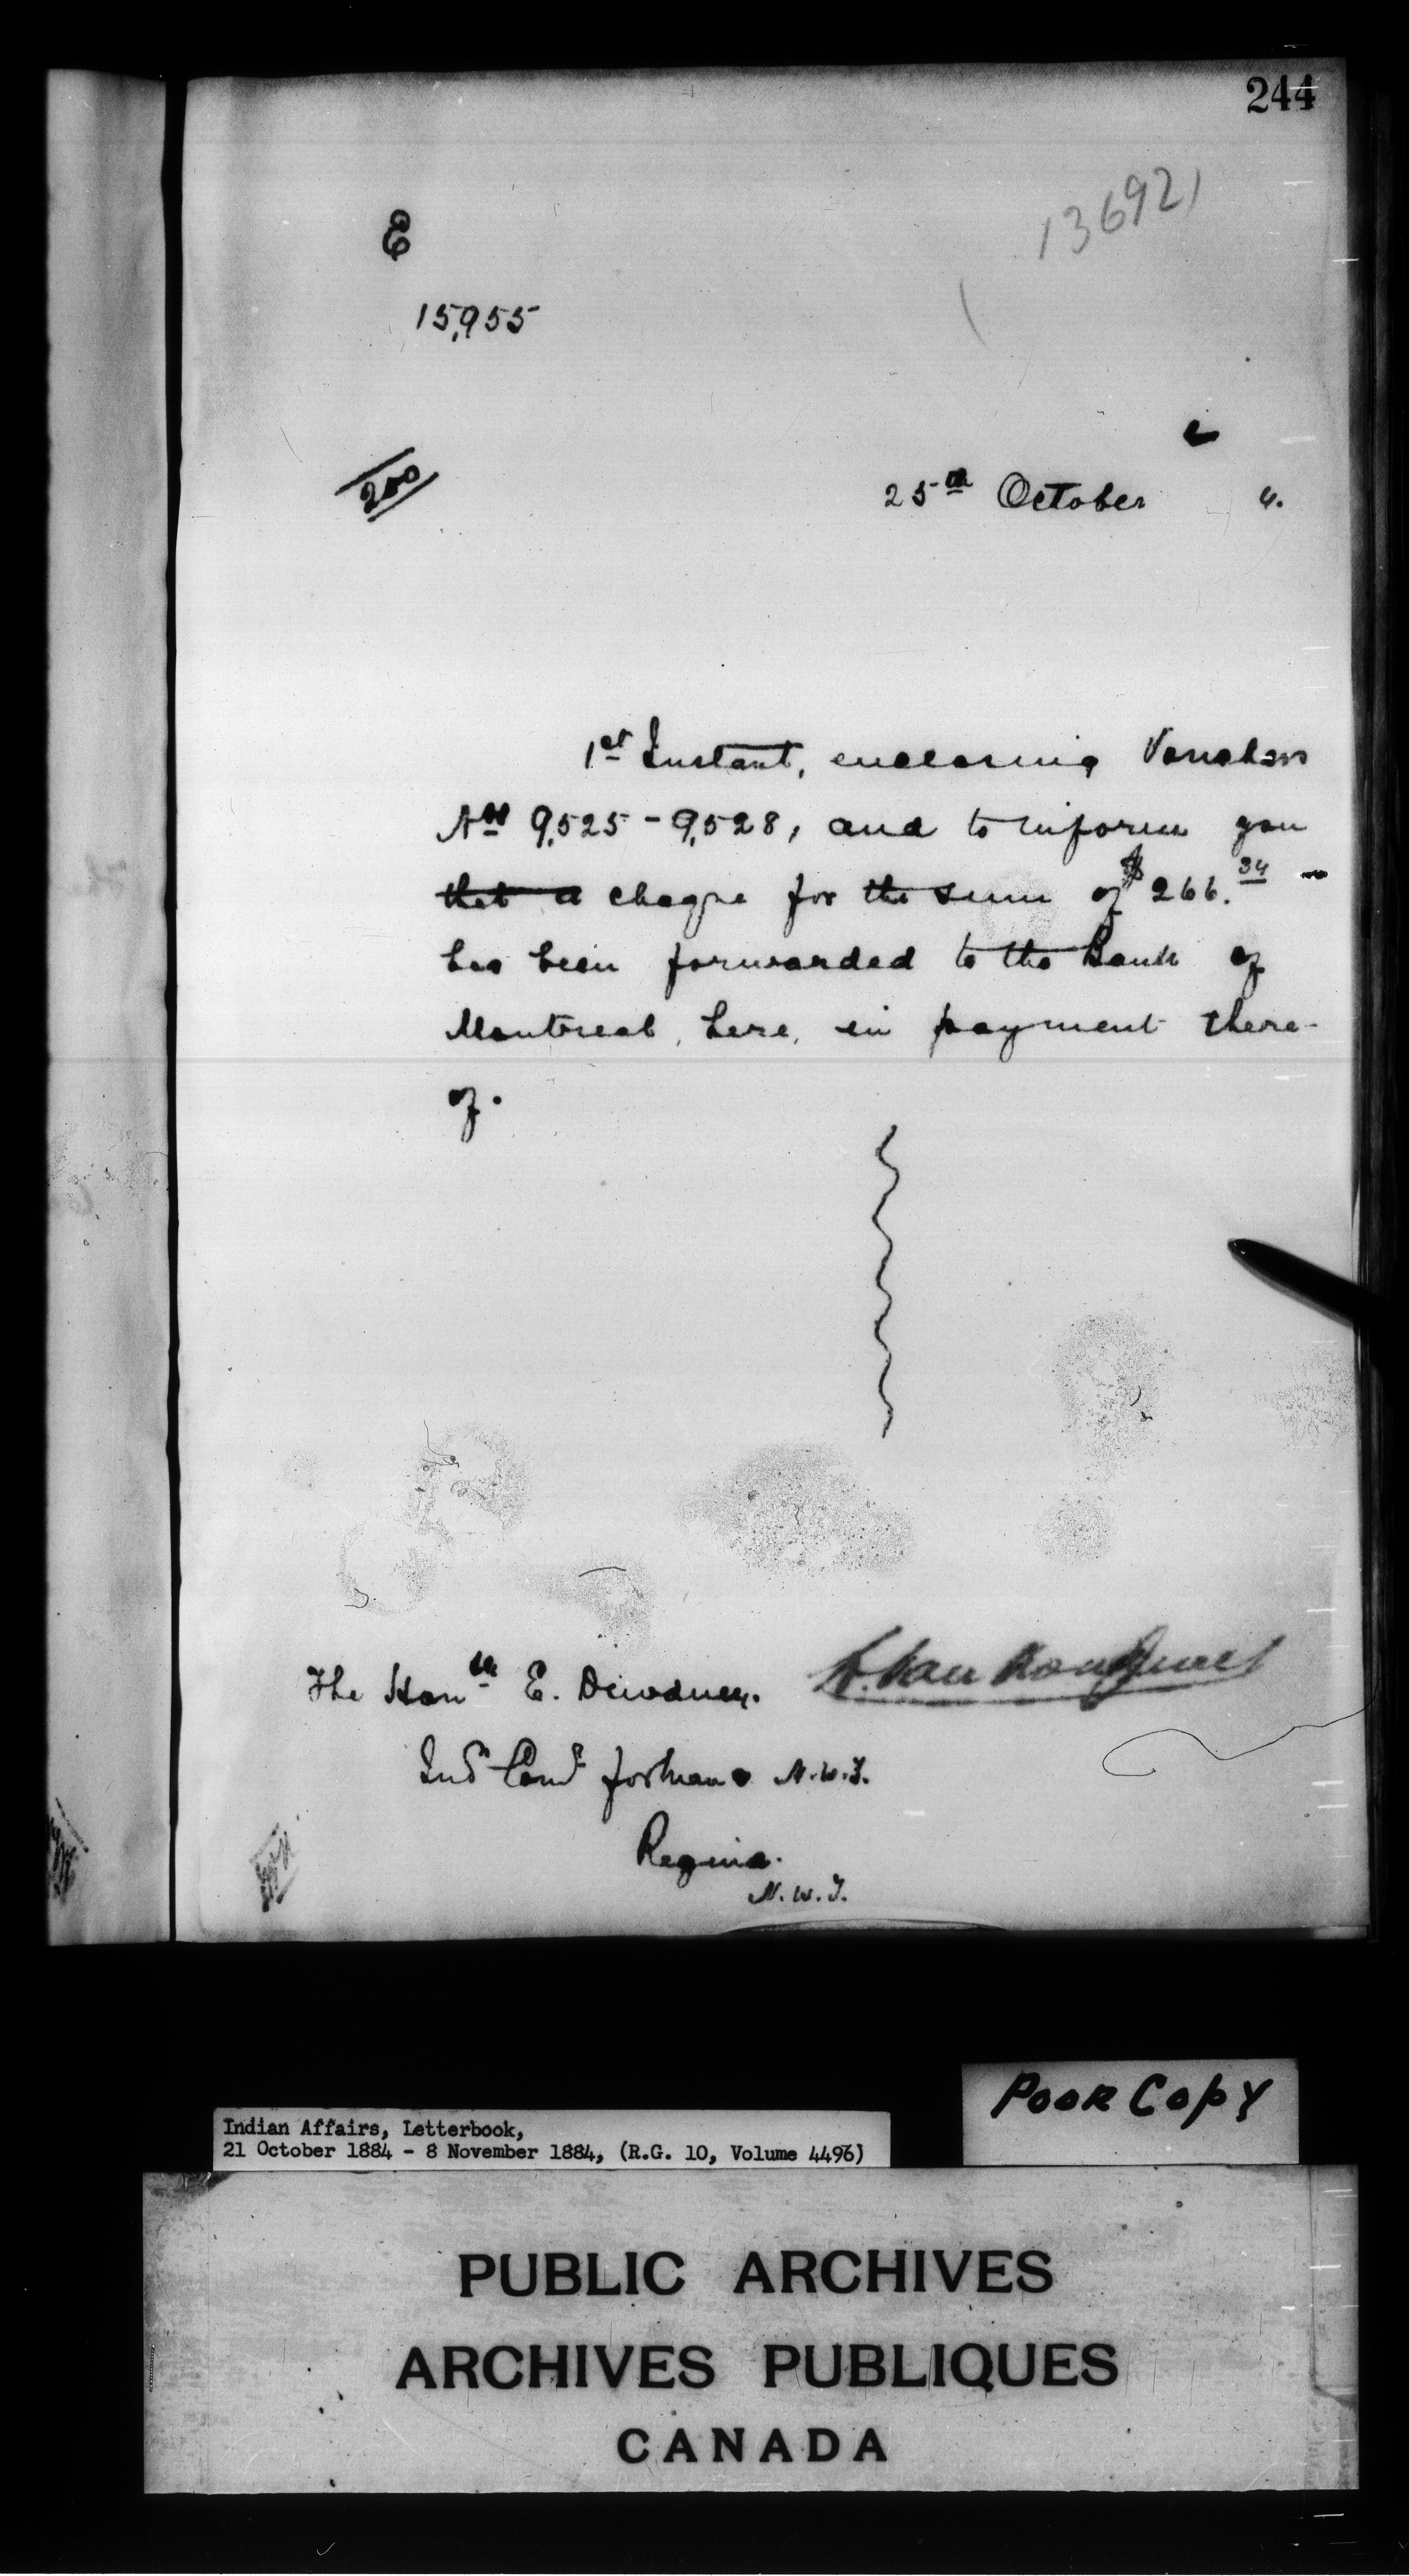 244
136921
E
15,955
200
25th October 4.
1st Instant, enclosing Vouchers
Nos 9,525 - 9,528, and to inform you
that a cheque for the sum of $266.34
has been forwarded to the Bank of
Montreal, here, in payment there-
of.
L. Vankoughnet
The Honble E. Dewdney.
Ind Comr for Man & N.W.T.
Regina.
N.W.T.
POOR COPY
Indian Affairs, Letterbook,
21 October 1884 - 8 November 1884, (R.G. 10, Volume 4496)
PUBLIC ARCHIVES
ARCHIVES PUBLIQUES
CANADA